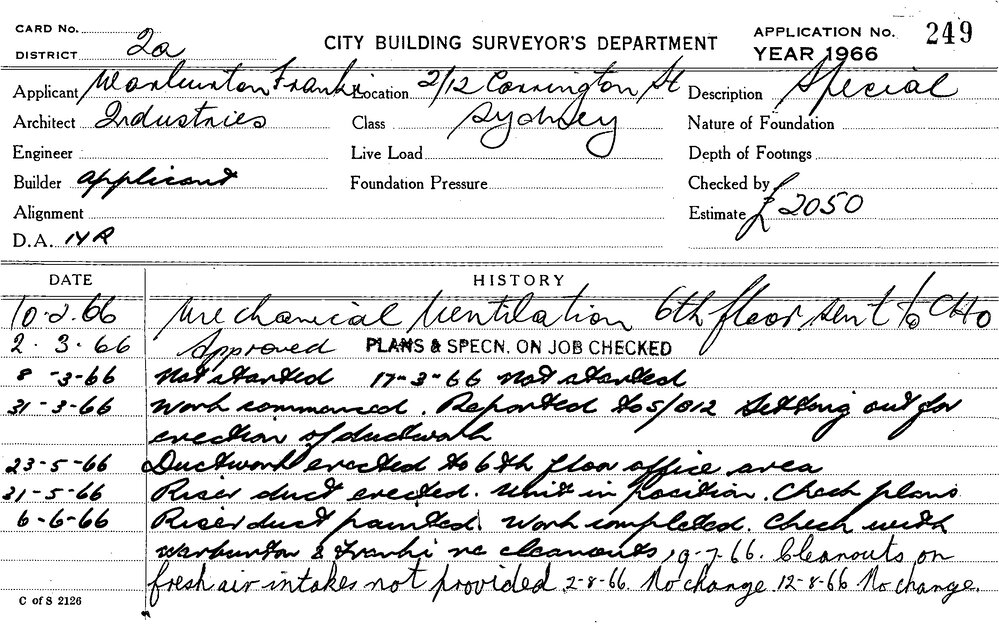 CARD No.
DISTRICT 2a
CITY BUILDING SURVEYOR'S DEPARTMENT
APPLICATION No. 249
YEAR 1966
Applicant Warburton Franki Location 2/12 Carrington St Description Special
Architect Industries Class Sydney Nature of Foundation
Engineer Live Load Depth of Footings
Builder applicant Foundation Pressure Checked by
Alignment Estimate £ 2050
D.A. 14R
DATE HISTORY
10-2-66 Mechanical Ventilation 6th floor sent to CHO
2.3.66 Approved PLANS & SPECN. ON JOB CHECKED
8-3-66 Not started 17-3-66 Not started
31-3-66 Work commenced. Reported to S/O12 Setting out for
erection of ductwork
23-5-66 Ductwork erected to 6th floor office area
31-5-66 Riser duct erected. Unit in position. Check plans
6-6-66 Riser duct painted. Work completed. Check with
Warburton & Franki re cleanouts, 19-7-66. Cleanouts on
fresh air intakes not provided. 2-8-66. No change. 12-8-66 No change.
C of S 2126